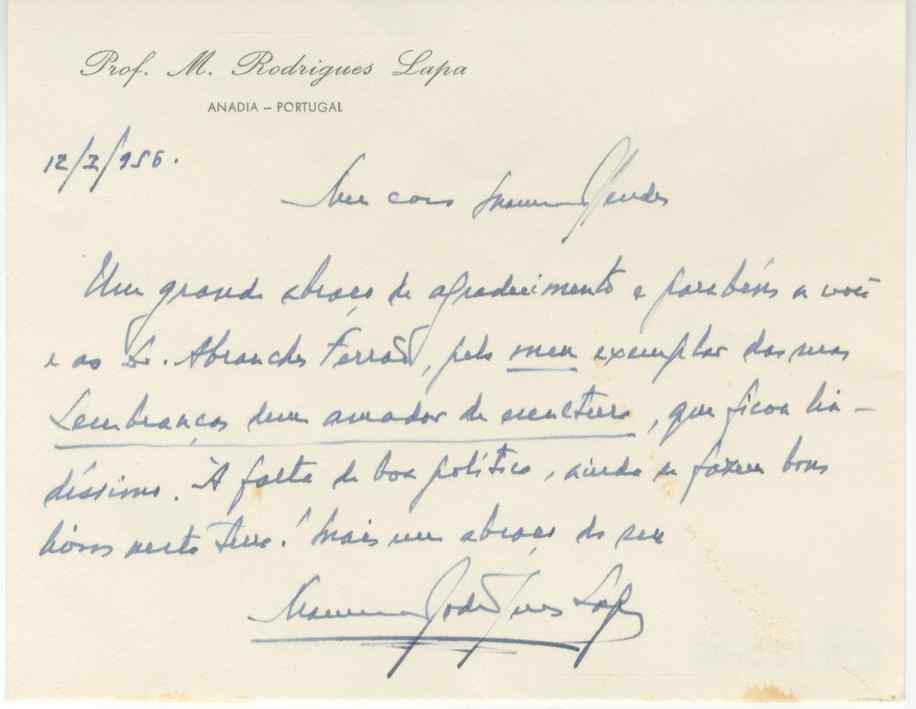 Prof. M. Rodrigues Lapa
ANADIA – PORTUGAL
12/7/956.
Meu caro Manuel Mendes
Um grande abraço de agradecimento e parabéns a você
e ao Dr. Abranches Ferrão, pelo meu exemplar das suas
Lembranças dum amador de escultura, que ficou lin-
díssimo. À falta de boa política, ainda se fazem bons
livros nesta terra! Mais um abraço do seu
Manuel Rodrigues Lapa